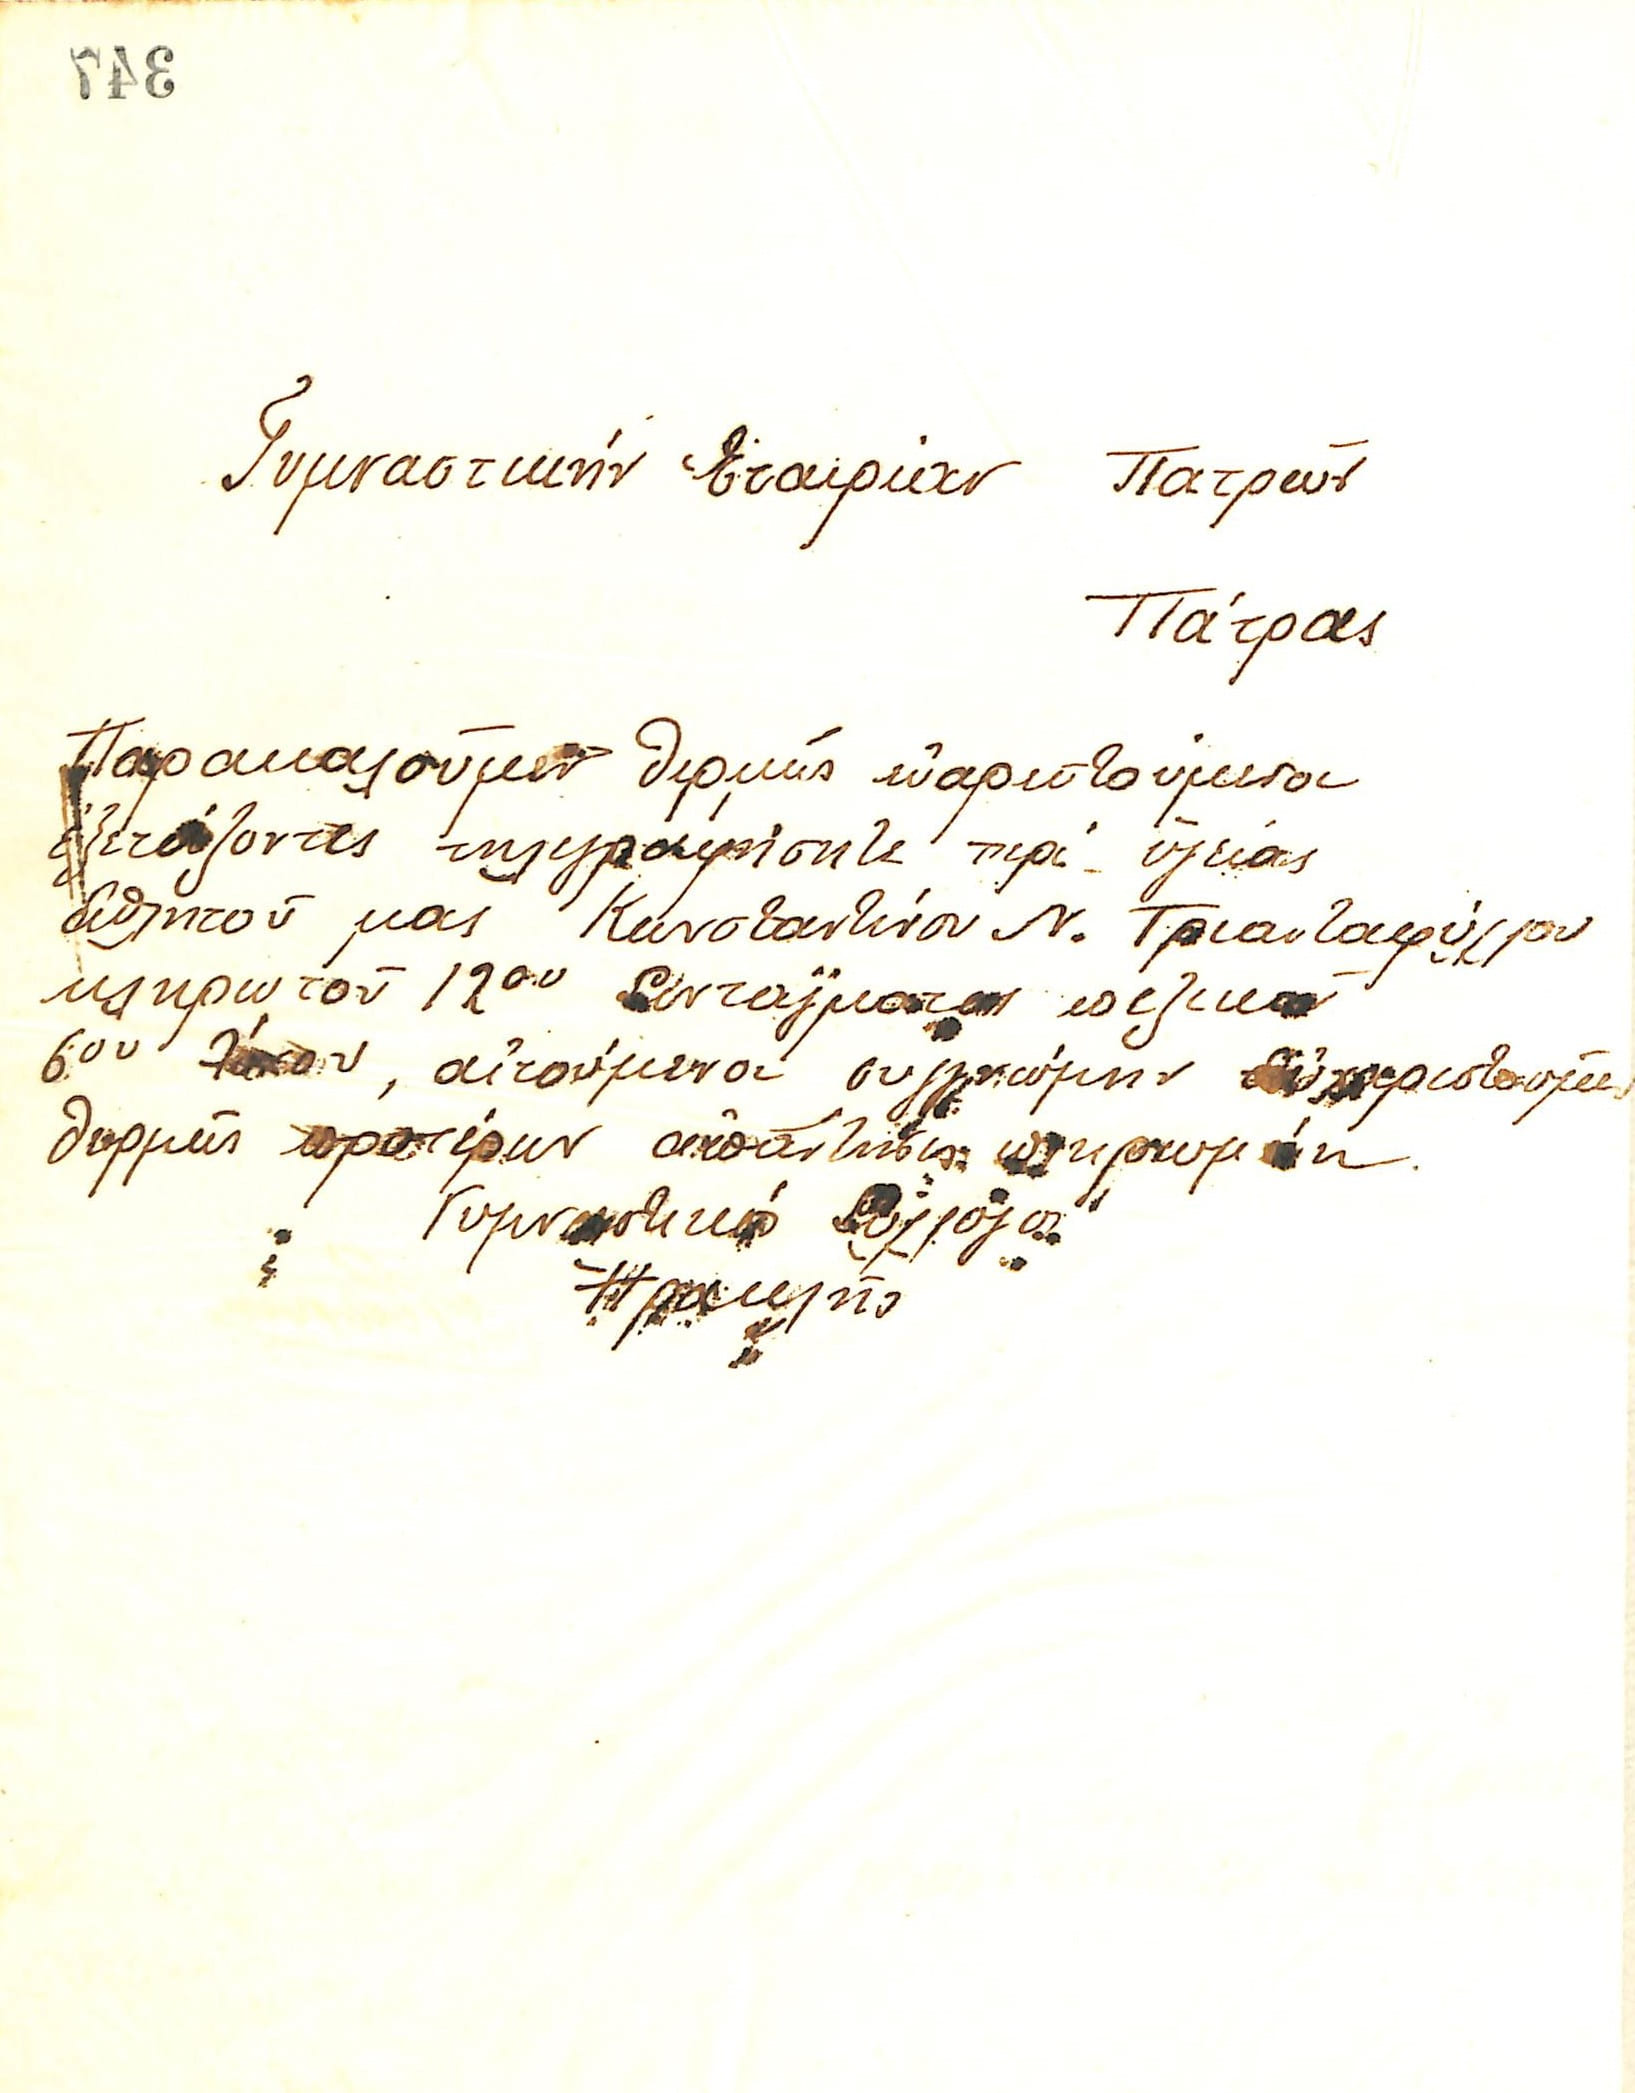 347
Γυμναστικήν Ἑταιρίαν Πατρῶν
Πάτρας
Παρακαλοῦμεν θερμῶς εὐαρεστούμενοι
ἐξετάζοντες τηλεγραφήσητε περί ὑγείας
ἀθλητοῦ μας Κωνσταντίνου Ν. Τριανταφύλλου
κληρωτοῦ 12ου Συντάγματος πεζικοῦ
6ου λόχου, αἰτούμενοι συγγνώμην εὐχαριστοῦμεν
θερμῶς προτέρων ἀπάντησις πληρωμένη.
Γυμναστικός Σύλλογος
Ἡρακλῆς